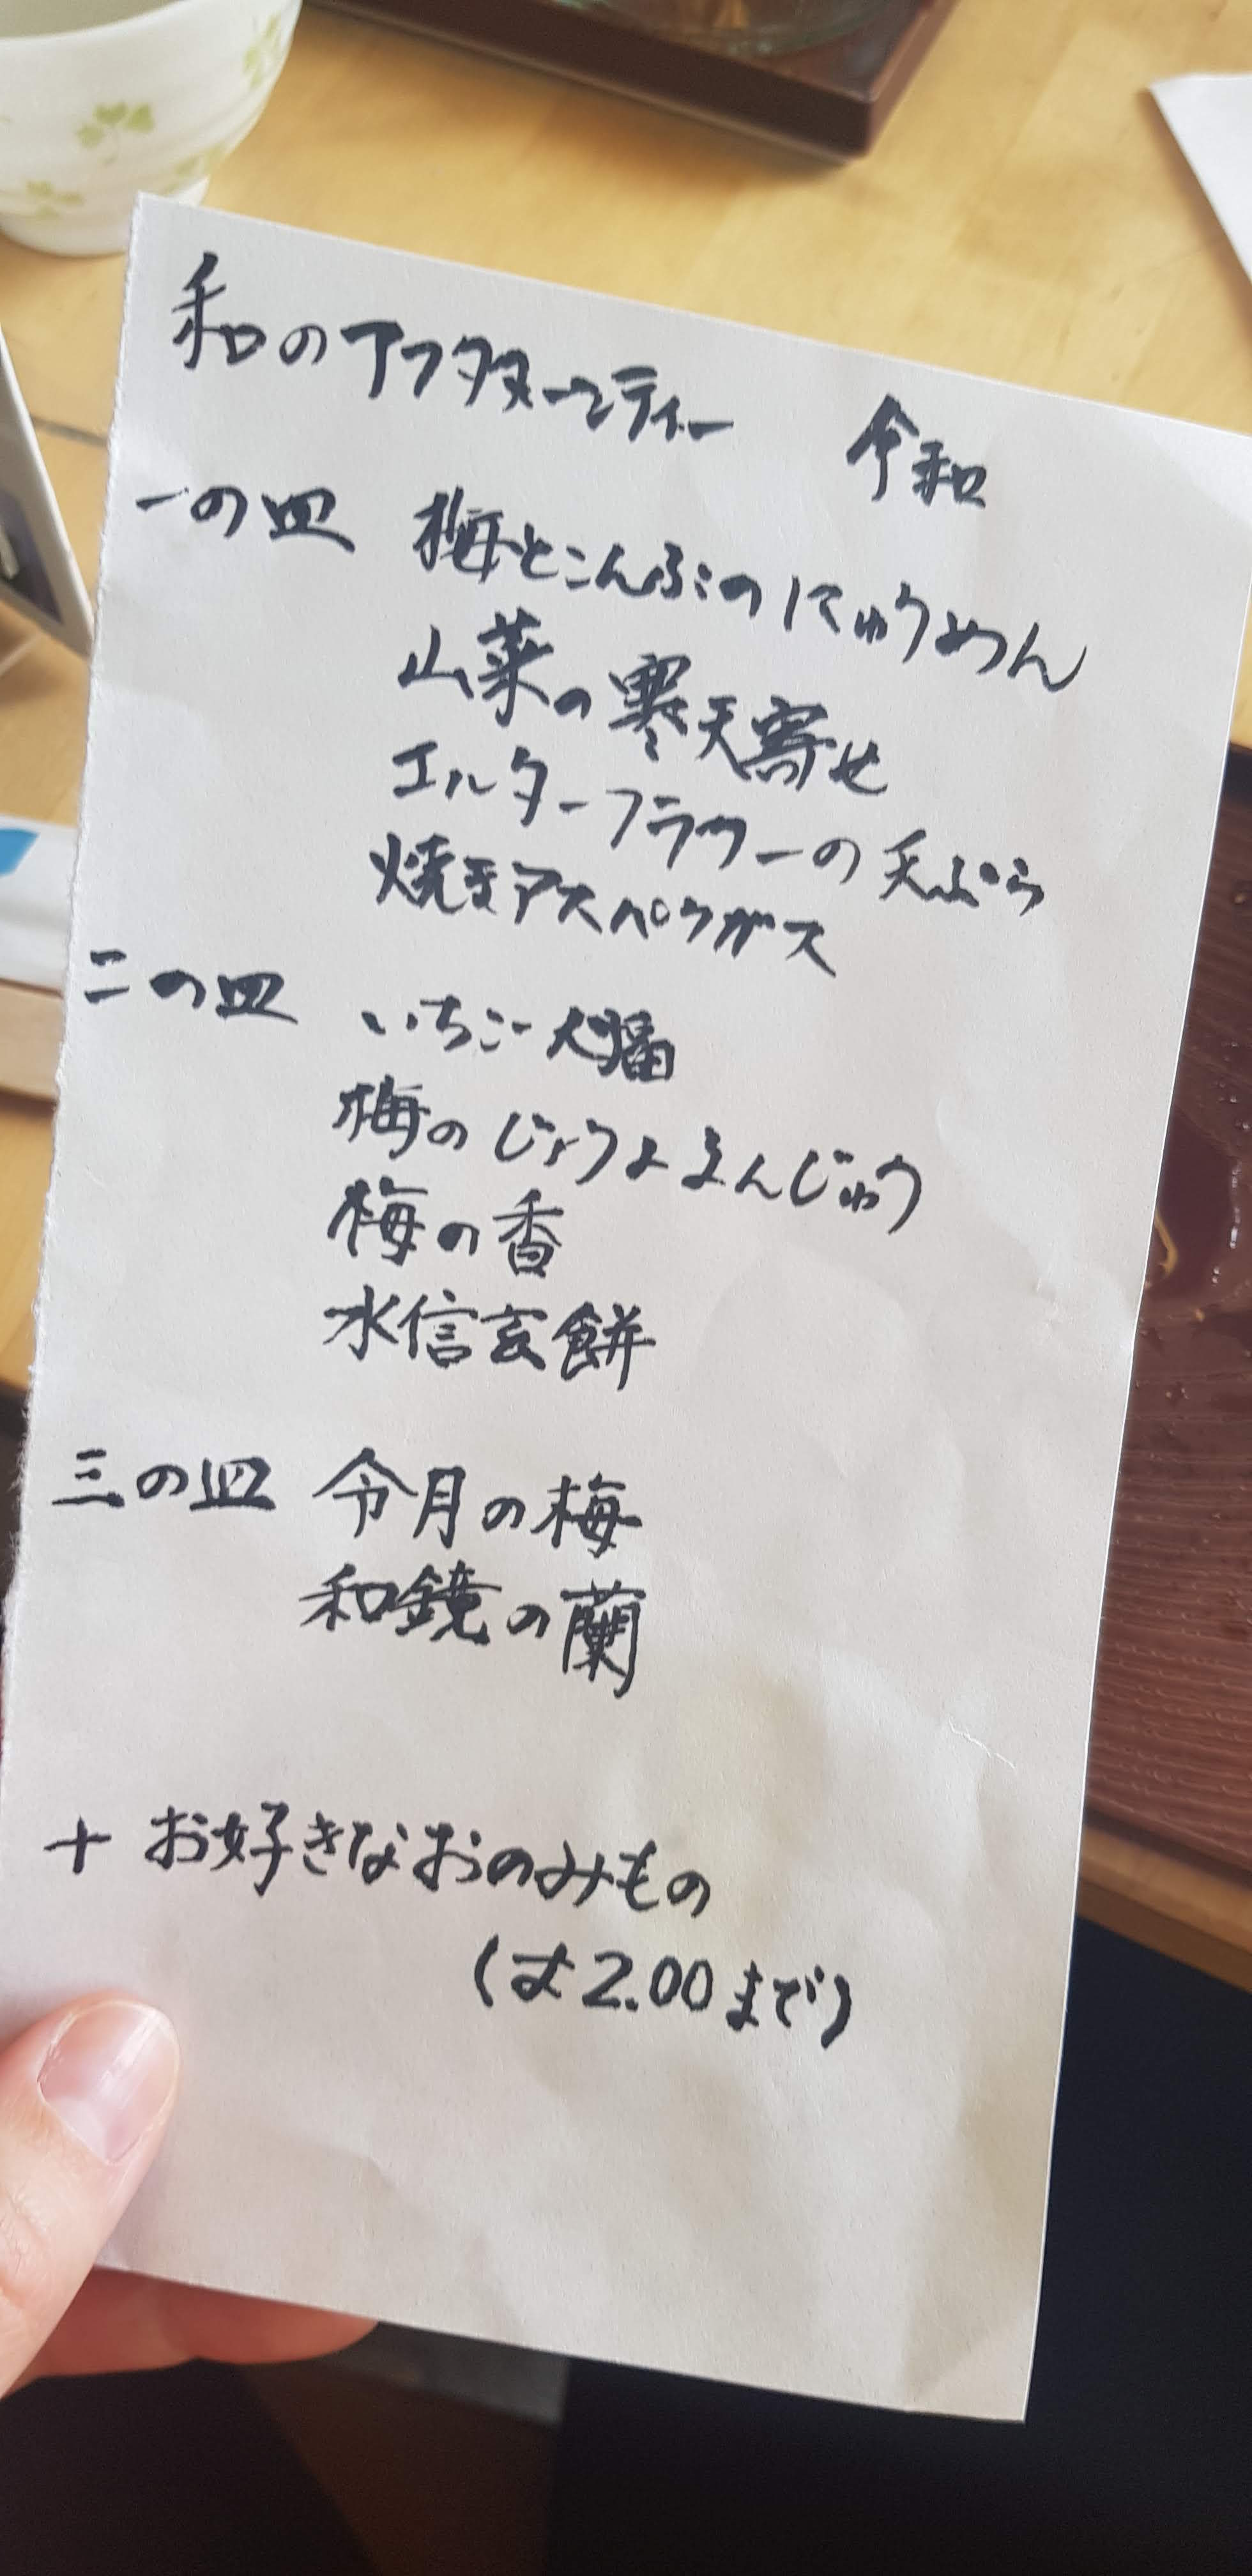 和のアフタヌーンティー 令和
一の皿 梅とこんぶのにゅうめん
山菜の寒天寄せ
エルダーフラワーの天ぷら
焼きアスパラガス
二の皿 いちご大福
梅のじょうよまんじゅう
梅の香
水信玄餅
三の皿 令月の梅
和鏡の蘭
+ お好きなおのみもの
2.00まで)